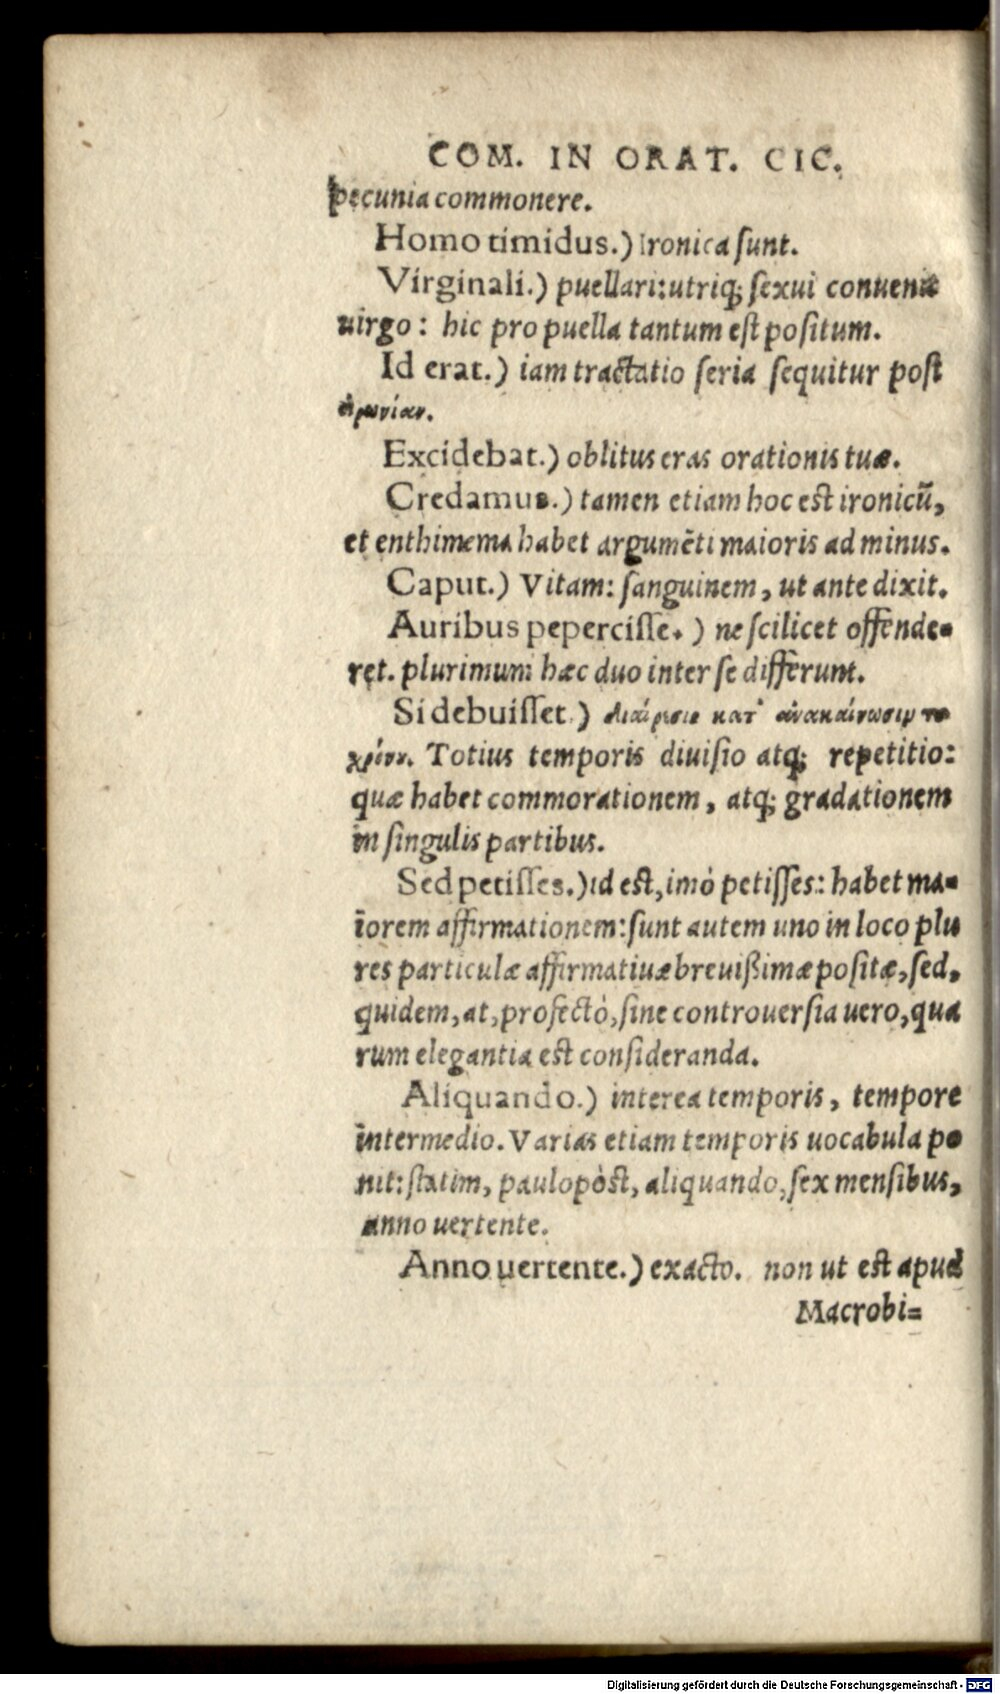 COM. IN ORAT. CIC.
pecunia commonere.
Homo timidus.) Ironica ſunt.
Virginali.) puellari: utriq; ſexui conuenit
uirgo: hic pro puella tantum eſt poſitum.
Id erat.) iam tractatio ſeria ſequitur poſt
Excidebat.) oblitus eras orationis tuæ.
Credamus.) tamen etiam hoc eſt ironicū,
et enthimema habet argumēti maioris ad minus.
Caput.) Vitam: ſanguinem, ut ante dixit.
Auribus peperciſſe.) ne ſcilicet offende-
ret. plurimum hæc duo inter ſe differunt.
Si debuiſſet.) κατ'
Totius temporis diuiſio atq; repetitio:
quæ habet commorationem, atq; gradationem
in ſingulis partibus.
Sed petiſſes.) id eſt, imò petiſſes: habet ma-
iorem affirmationem: ſunt autem uno in loco plu
res particulæ affirmatiuæ breuißimæ poſitæ, ſed,
quidem, at, profectò, ſine controuerſia uero, qua
rum elegantia eſt conſideranda.
Aliquando.) interea temporis, tempore
intermedio. Varias etiam temporis uocabula po
nit: ſtatim, paulopòſt, aliquando, ſex menſibus,
anno uertente.
Anno uertente.) exacto. non ut eſt apud
Macrobi=
Digitalisierung gefördert durch die Deutsche Forschungsgemeinschaft - DFG